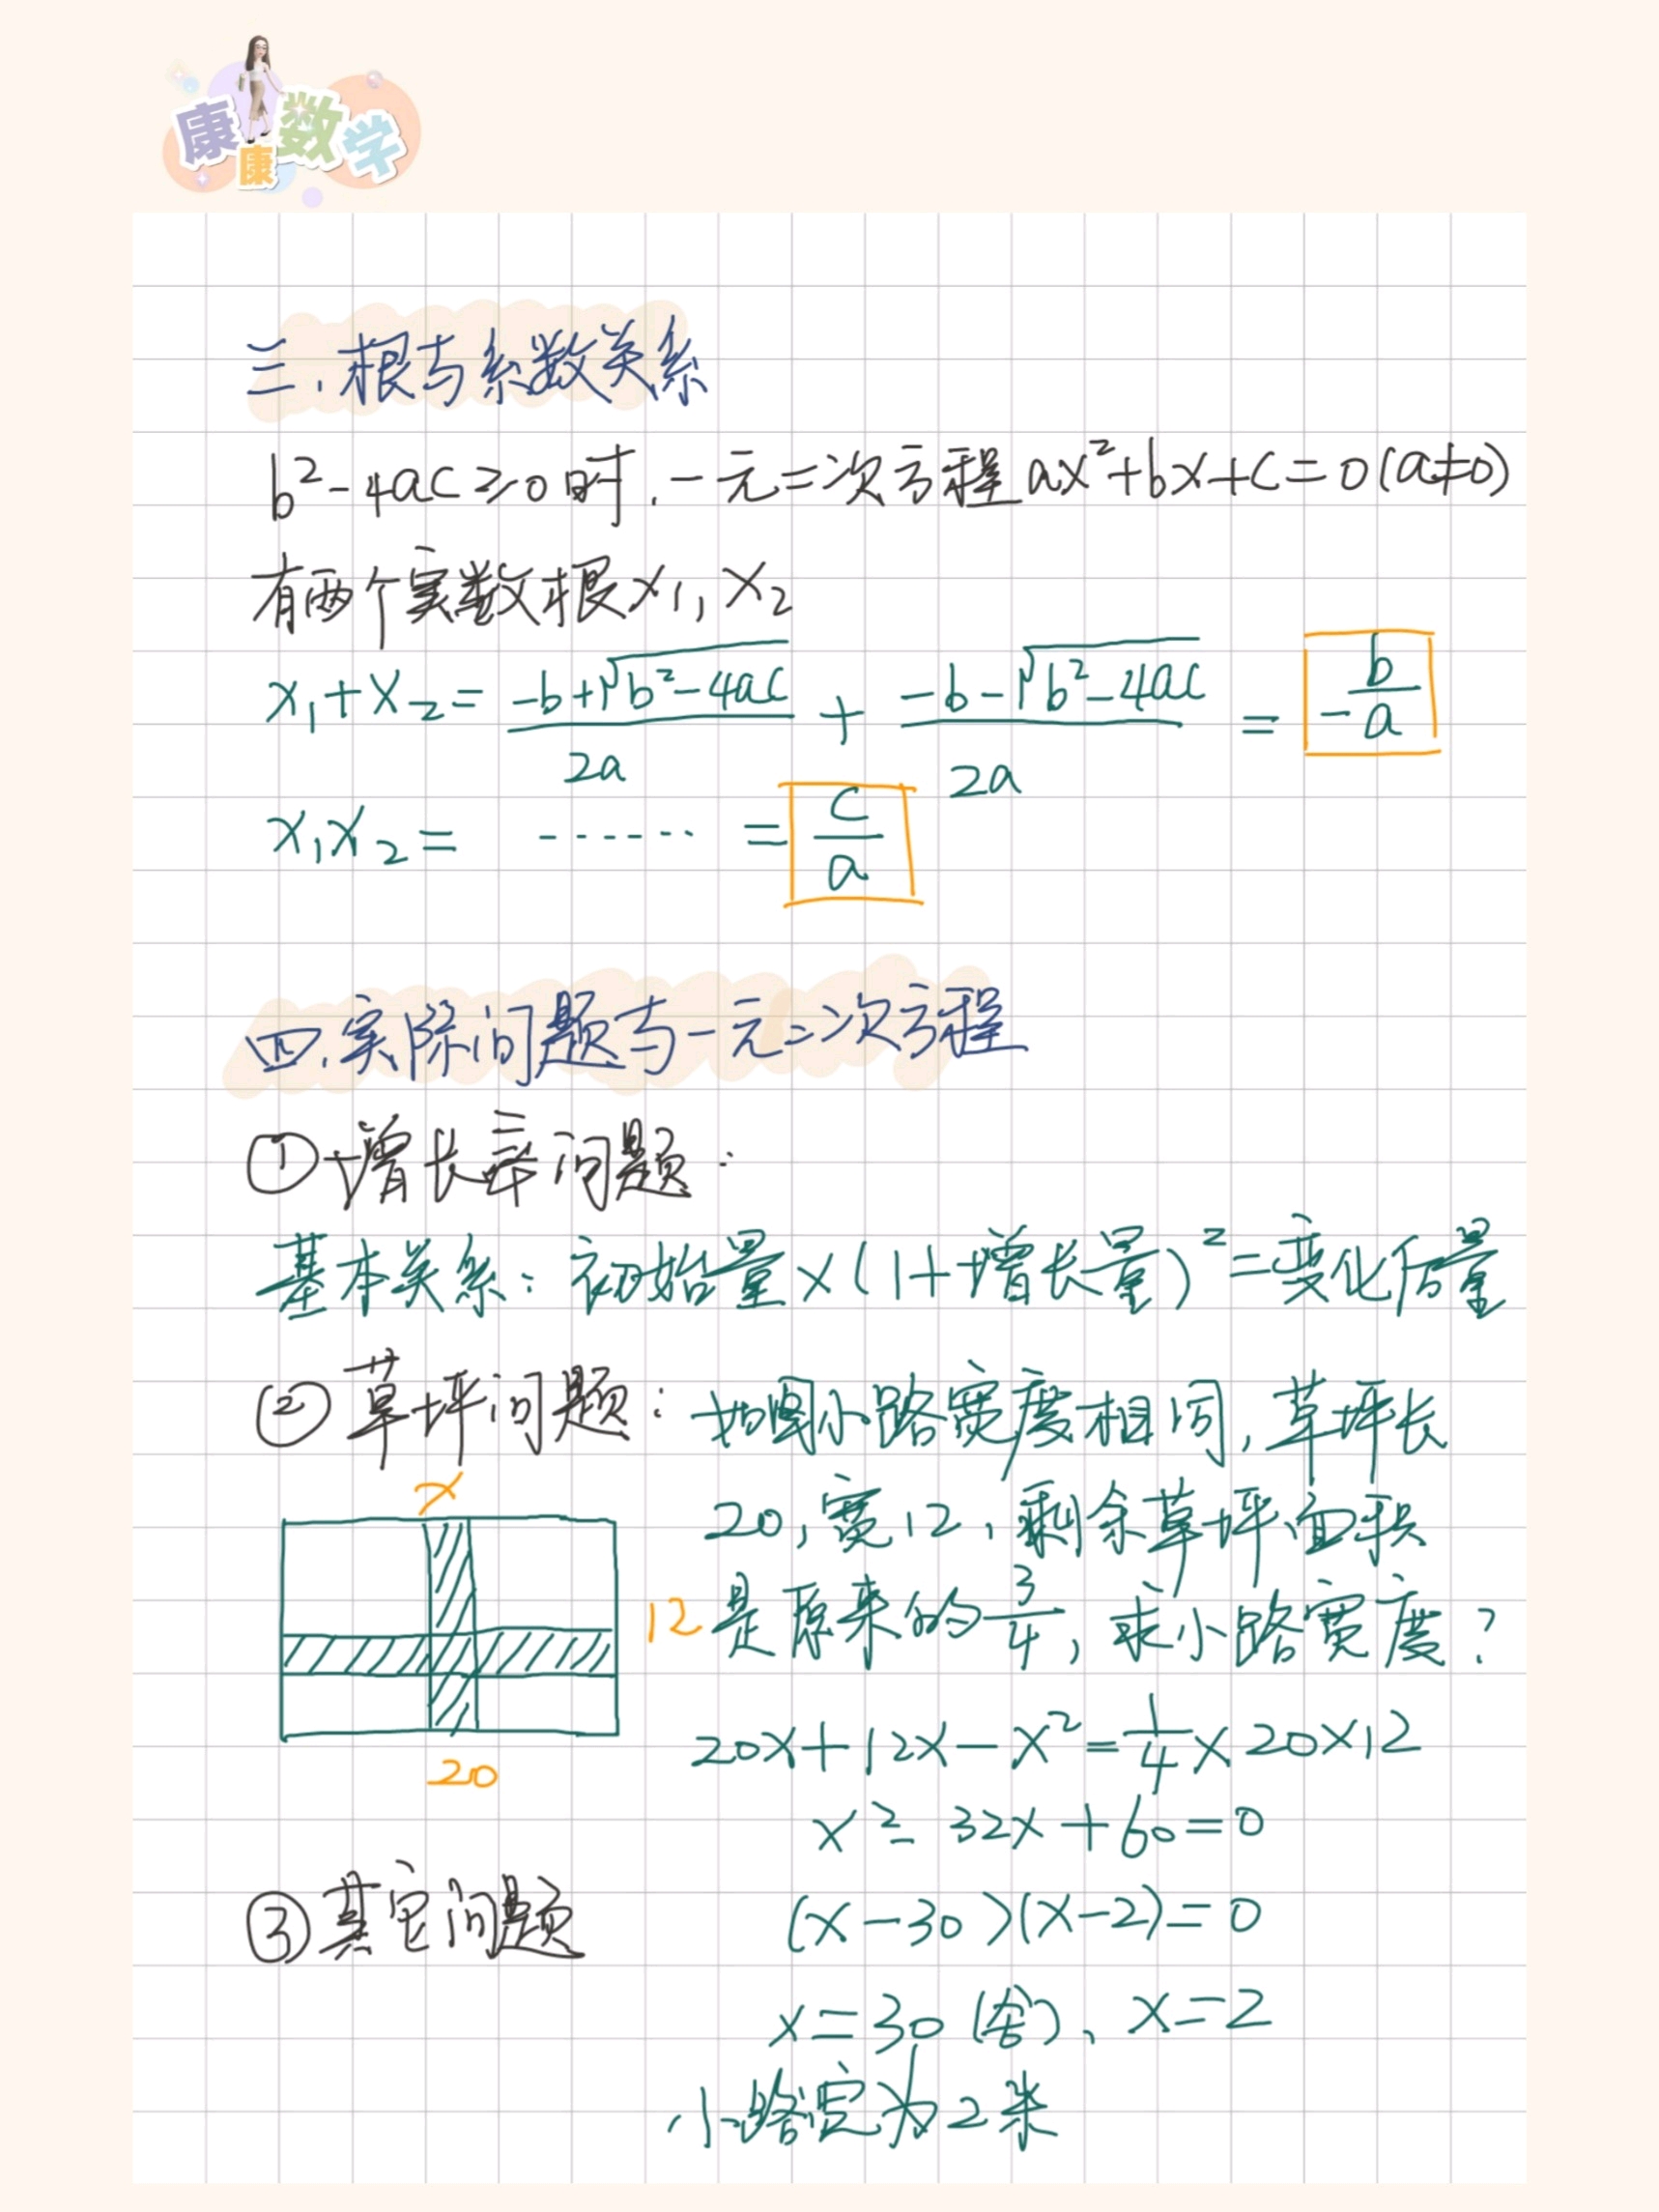 康康数学
三.根与系数关系
b²-4ac≥0时.一元二次方程ax²+bx+c=0(a≠0)
有两个实数根x₁,x₂
x₁+x₂=(-b+√(b²-4ac))/2a + (-b-√(b²-4ac))/2a = -b/a
x₁x₂= ······ = c/a
四.实际问题与一元二次方程
①增长率问题:
基本关系:初始量×(1+增长量)²=变化后量
②草坪问题:如图小路宽度相同,草坪长
20,宽12,剩余草坪面积
是原来的3/4,求小路宽度?
x
12
20
20x+12x-x²=1/4×20×12
x²-32x+60=0
(x-30)(x-2)=0
x=30(舍)、x=2
小路宽为2米
③其它问题